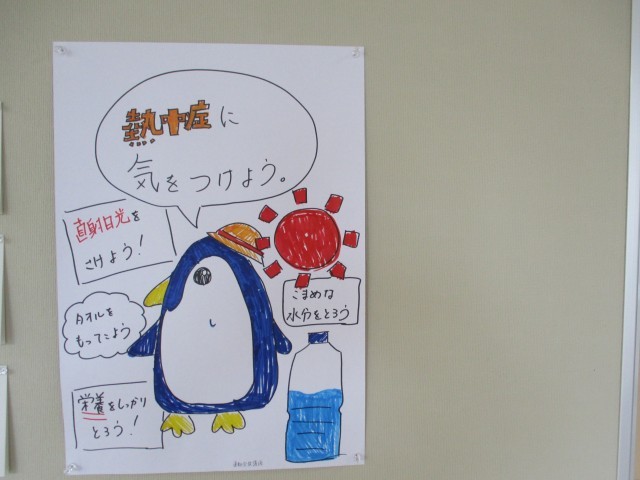 熱中症に
気をつけよう。
直射日光を
さけよう！
こまめな
水分をとろう
タオルを
もってこよう
栄養をしっかり
とろう！